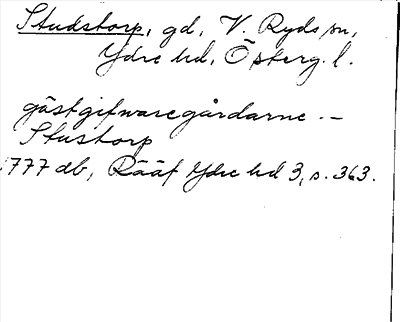 Studstorp, gd, V. Ryds sn,
Ydre hd, Österg. l.
gästgifwaregårdarne –
Stustorp
1777 db, Rääf Ydre hd 3, s. 363.